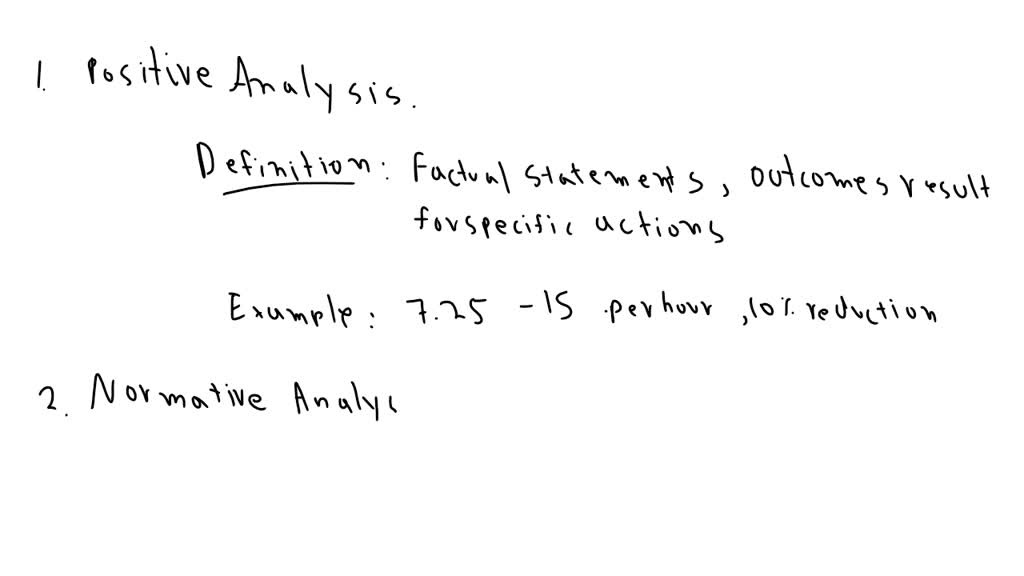 1. Positive Analysis.
Definition: Factual statements, outcomes result
for specific actions
Example: 7.25 - 15 .per hour, 10% reduction
2. Normative Analys